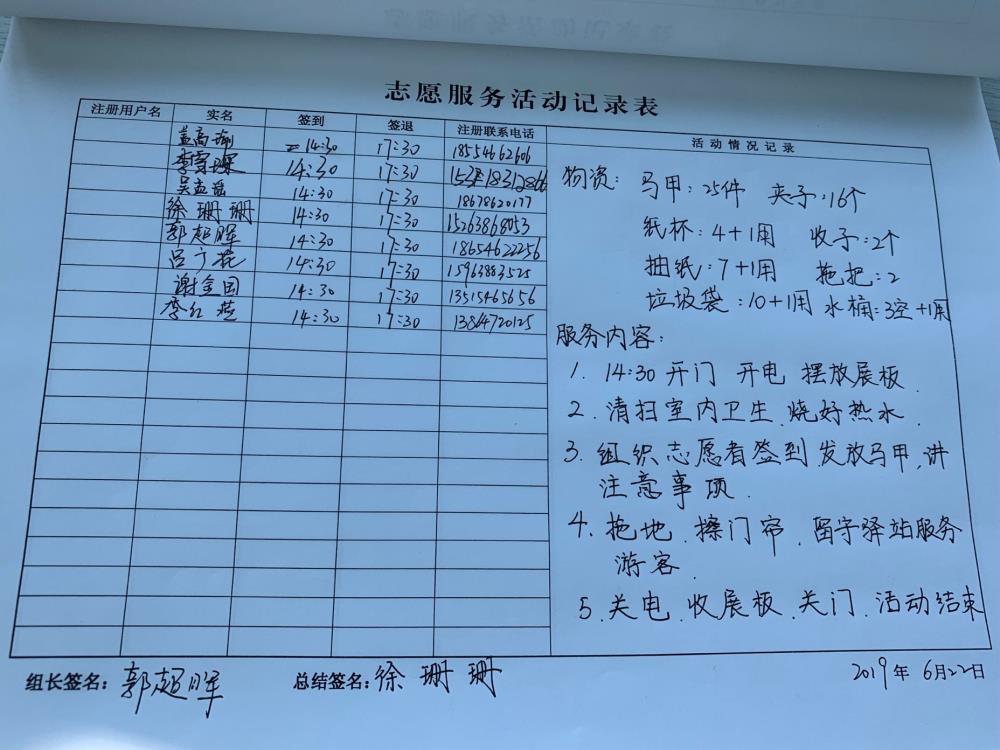 志愿服务活动记录表
注册用户名 实名 签到 签退 注册联系电话 活动情况记录
盖高 14:30 17:30 18554662606
李雪 14:30 17:30 18312866
吴孟瑶 14:30 17:30 18678620177
徐珊珊 14:30 17:30 15263868053
郭超晖 14:30 17:30 18654622256
吕广花 14:30 17:30 15963883525
谢金国 14:30 17:30 13515465656
李红燕 14:30 17:30 13864720125
物资: 马甲:25件 夹子:16个
纸杯:4+1用 收子:2个
抽纸:7+1用 拖把:2
垃圾袋:10+1用 水桶:3空+1用
服务内容:
1. 14:30 开门 开电 摆放展板.
2. 清扫室内卫生.烧好热水.
3. 组织志愿者签到.发放马甲.讲
注意事项.
4. 拖地.擦门帘.留守驿站服务
游客.
5.关电.收展板.关门.活动结束
组长签名:郭超晖 总结签名:徐珊珊 2019年6月22日